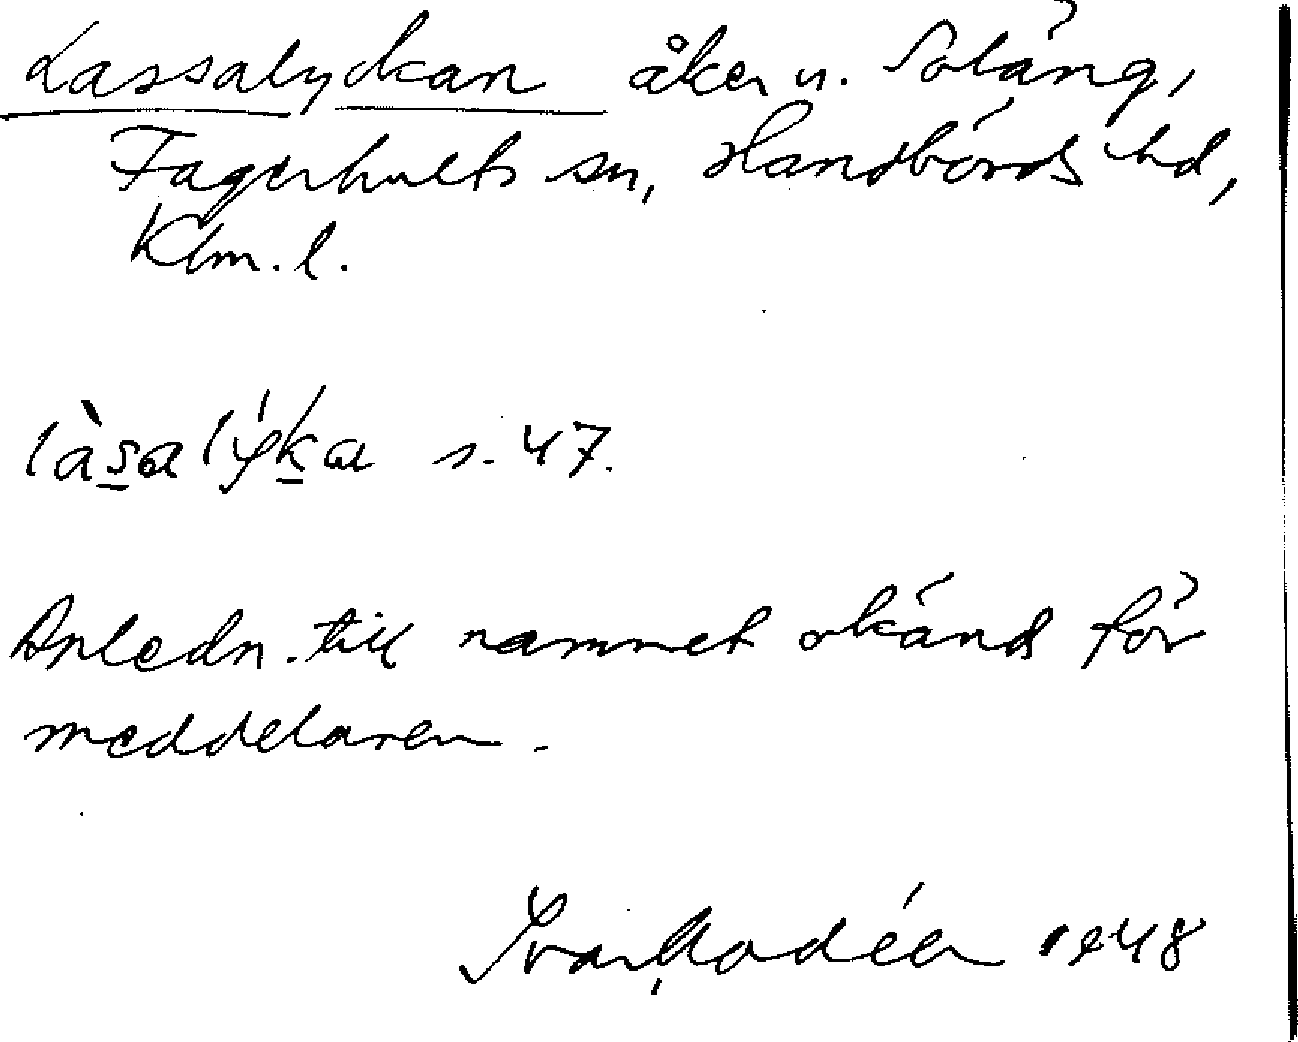 Lassalyckan åker u. Soläng,
Fagerhults sn, Handbörds hd,
Klm. l.
làs̱alýḵa s. 47.
Anledn. till namnet okänd för
meddelaren.
Ivar Modéer 1948